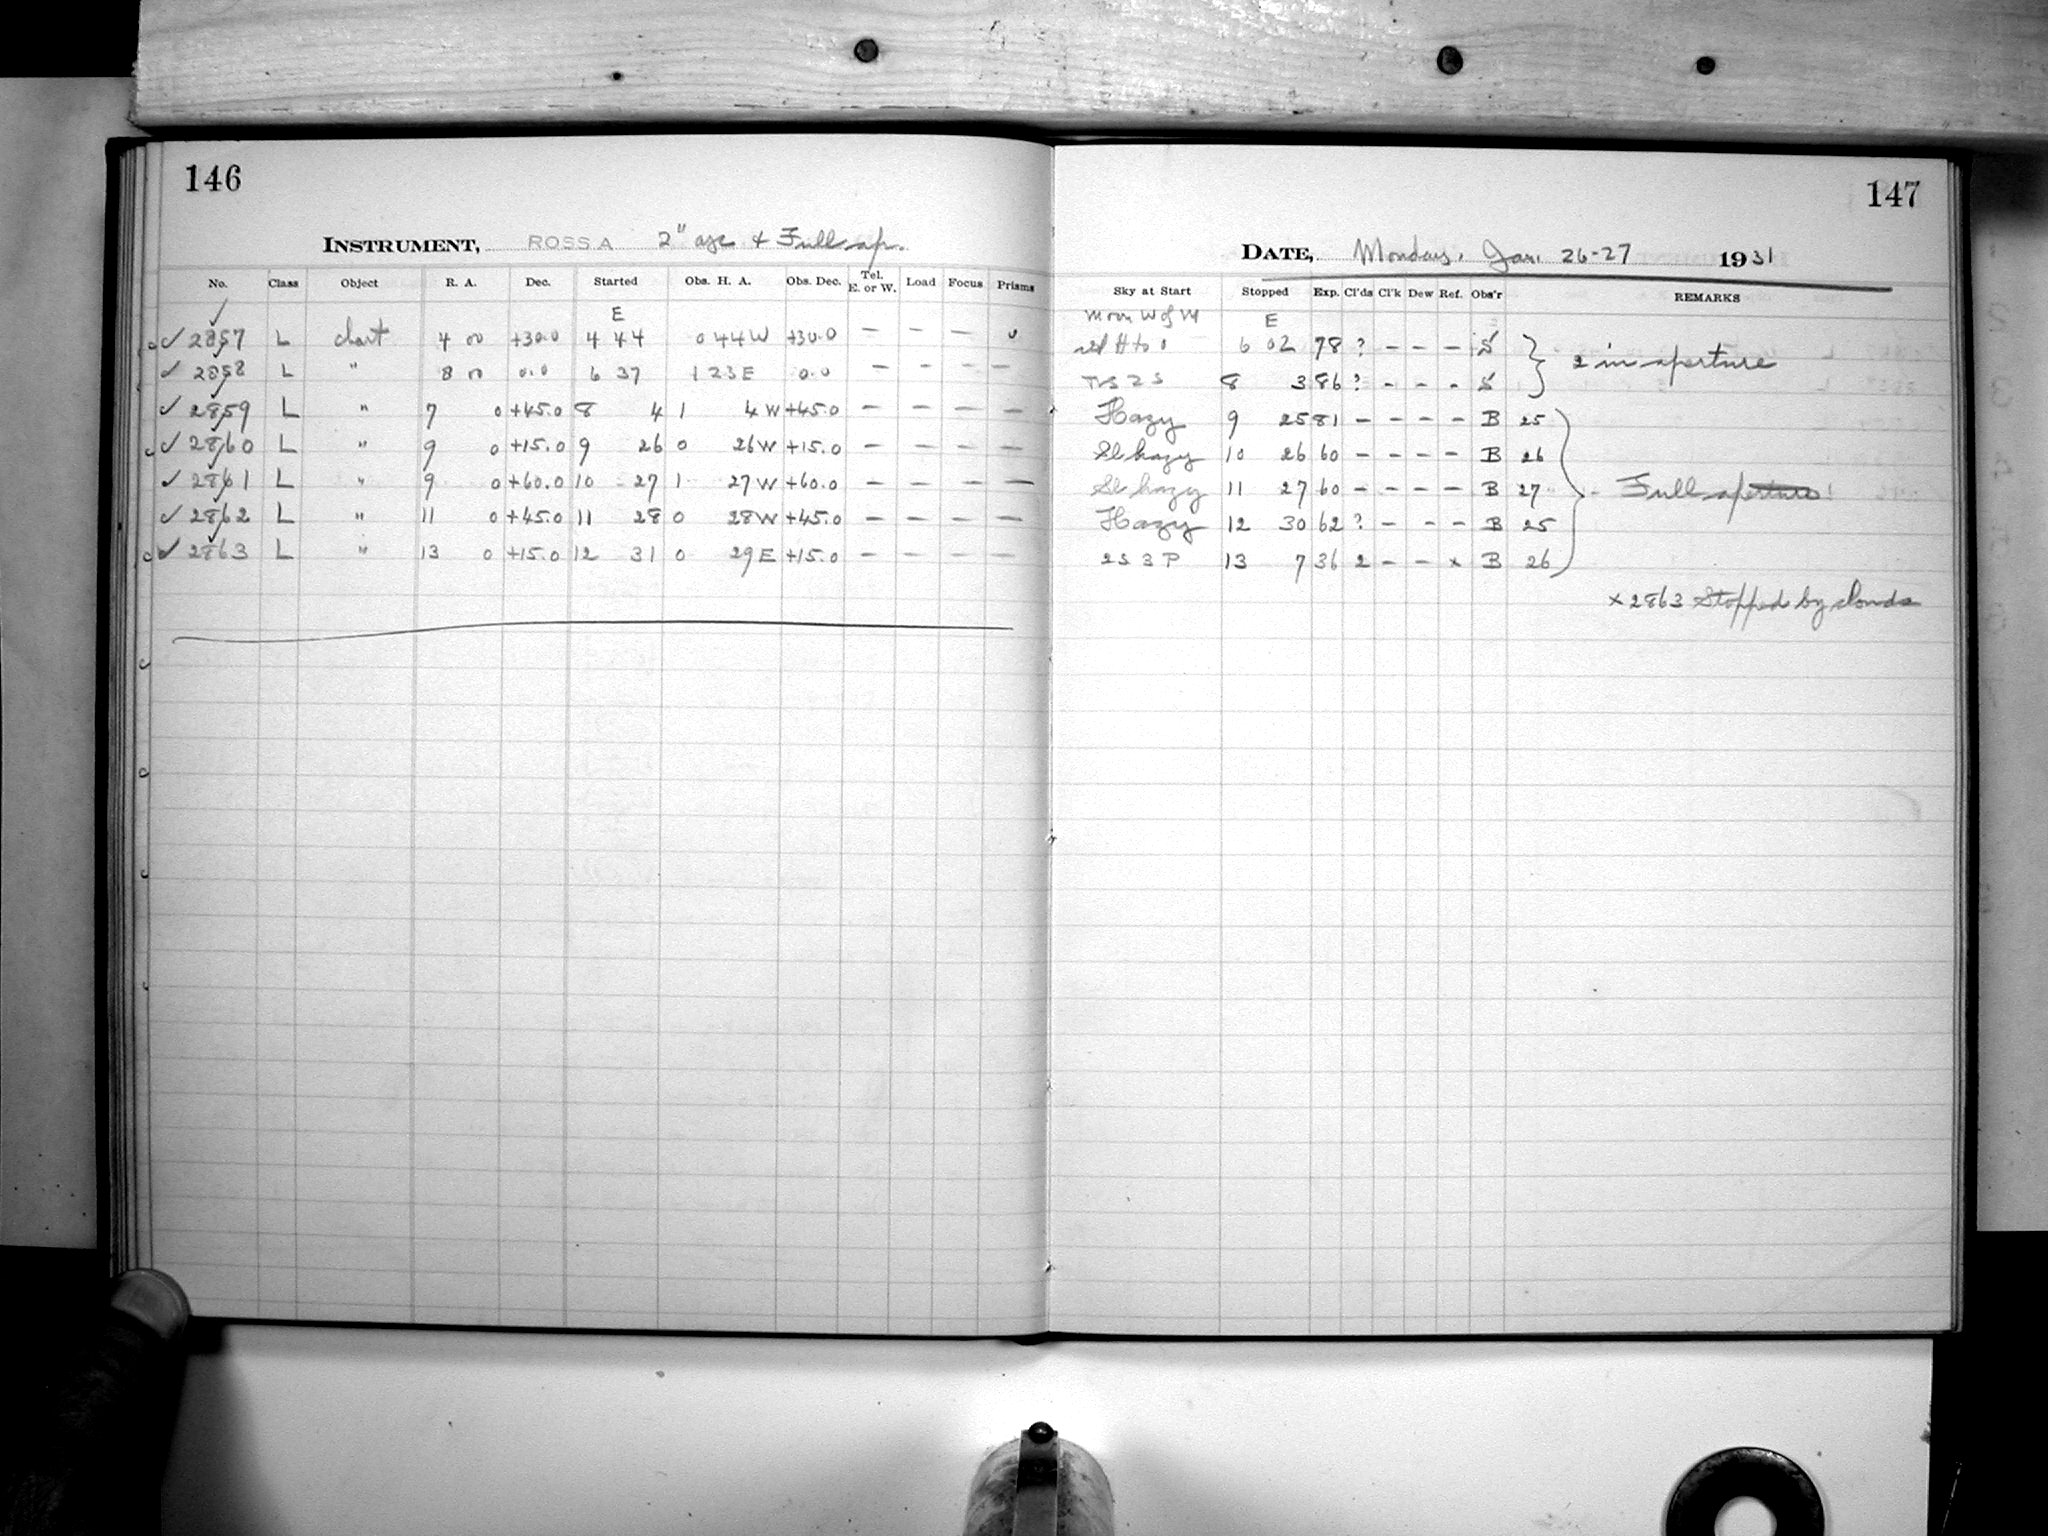 146
INSTRUMENT, ROSS A 2" ape & Full ap.
No. Class Object R. A. Dec. Started Obs. H. A. Obs. Dec. Tel. E. or W. Load Focus Prisms
E
2857 L chart 4 00 +30.0 4 44 0 44 W +30.0 — — —
2858 L " 8 00 0.0 6 37 1 23 E 0.0 — — — —
2859 L " 7 0 +45.0 8 4 1 4 W +45.0 — — — —
2860 L " 9 0 +15.0 9 26 0 26 W +15.0 — — — —
2861 L " 9 0 +60.0 10 27 1 27 W +60.0 — — — —
2862 L " 11 0 +45.0 11 28 0 28 W +45.0 — — — —
2863 L " 13 0 +15.0 12 31 0 29 E +15.0 — — — —
147
DATE, Monday, Jan. 26-27 1931
Sky at Start Stopped Exp. Cl'ds Cl'k Dew Ref. Obs'r REMARKS
Moon W of M E
6 02 78 ? – – – S
2 in aperture
8 3 86 ? – – – S
Hazy 9 25 81 – – – – B 25
Sl hazy 10 26 60 – – – – B 26
Sl hazy 11 27 60 – – – – B 27 Full aperture
Hazy 12 30 62 ? – – – B 25
2S 3 P 13 7 36 2 – – x B 26
x 2863 Stopped by clouds